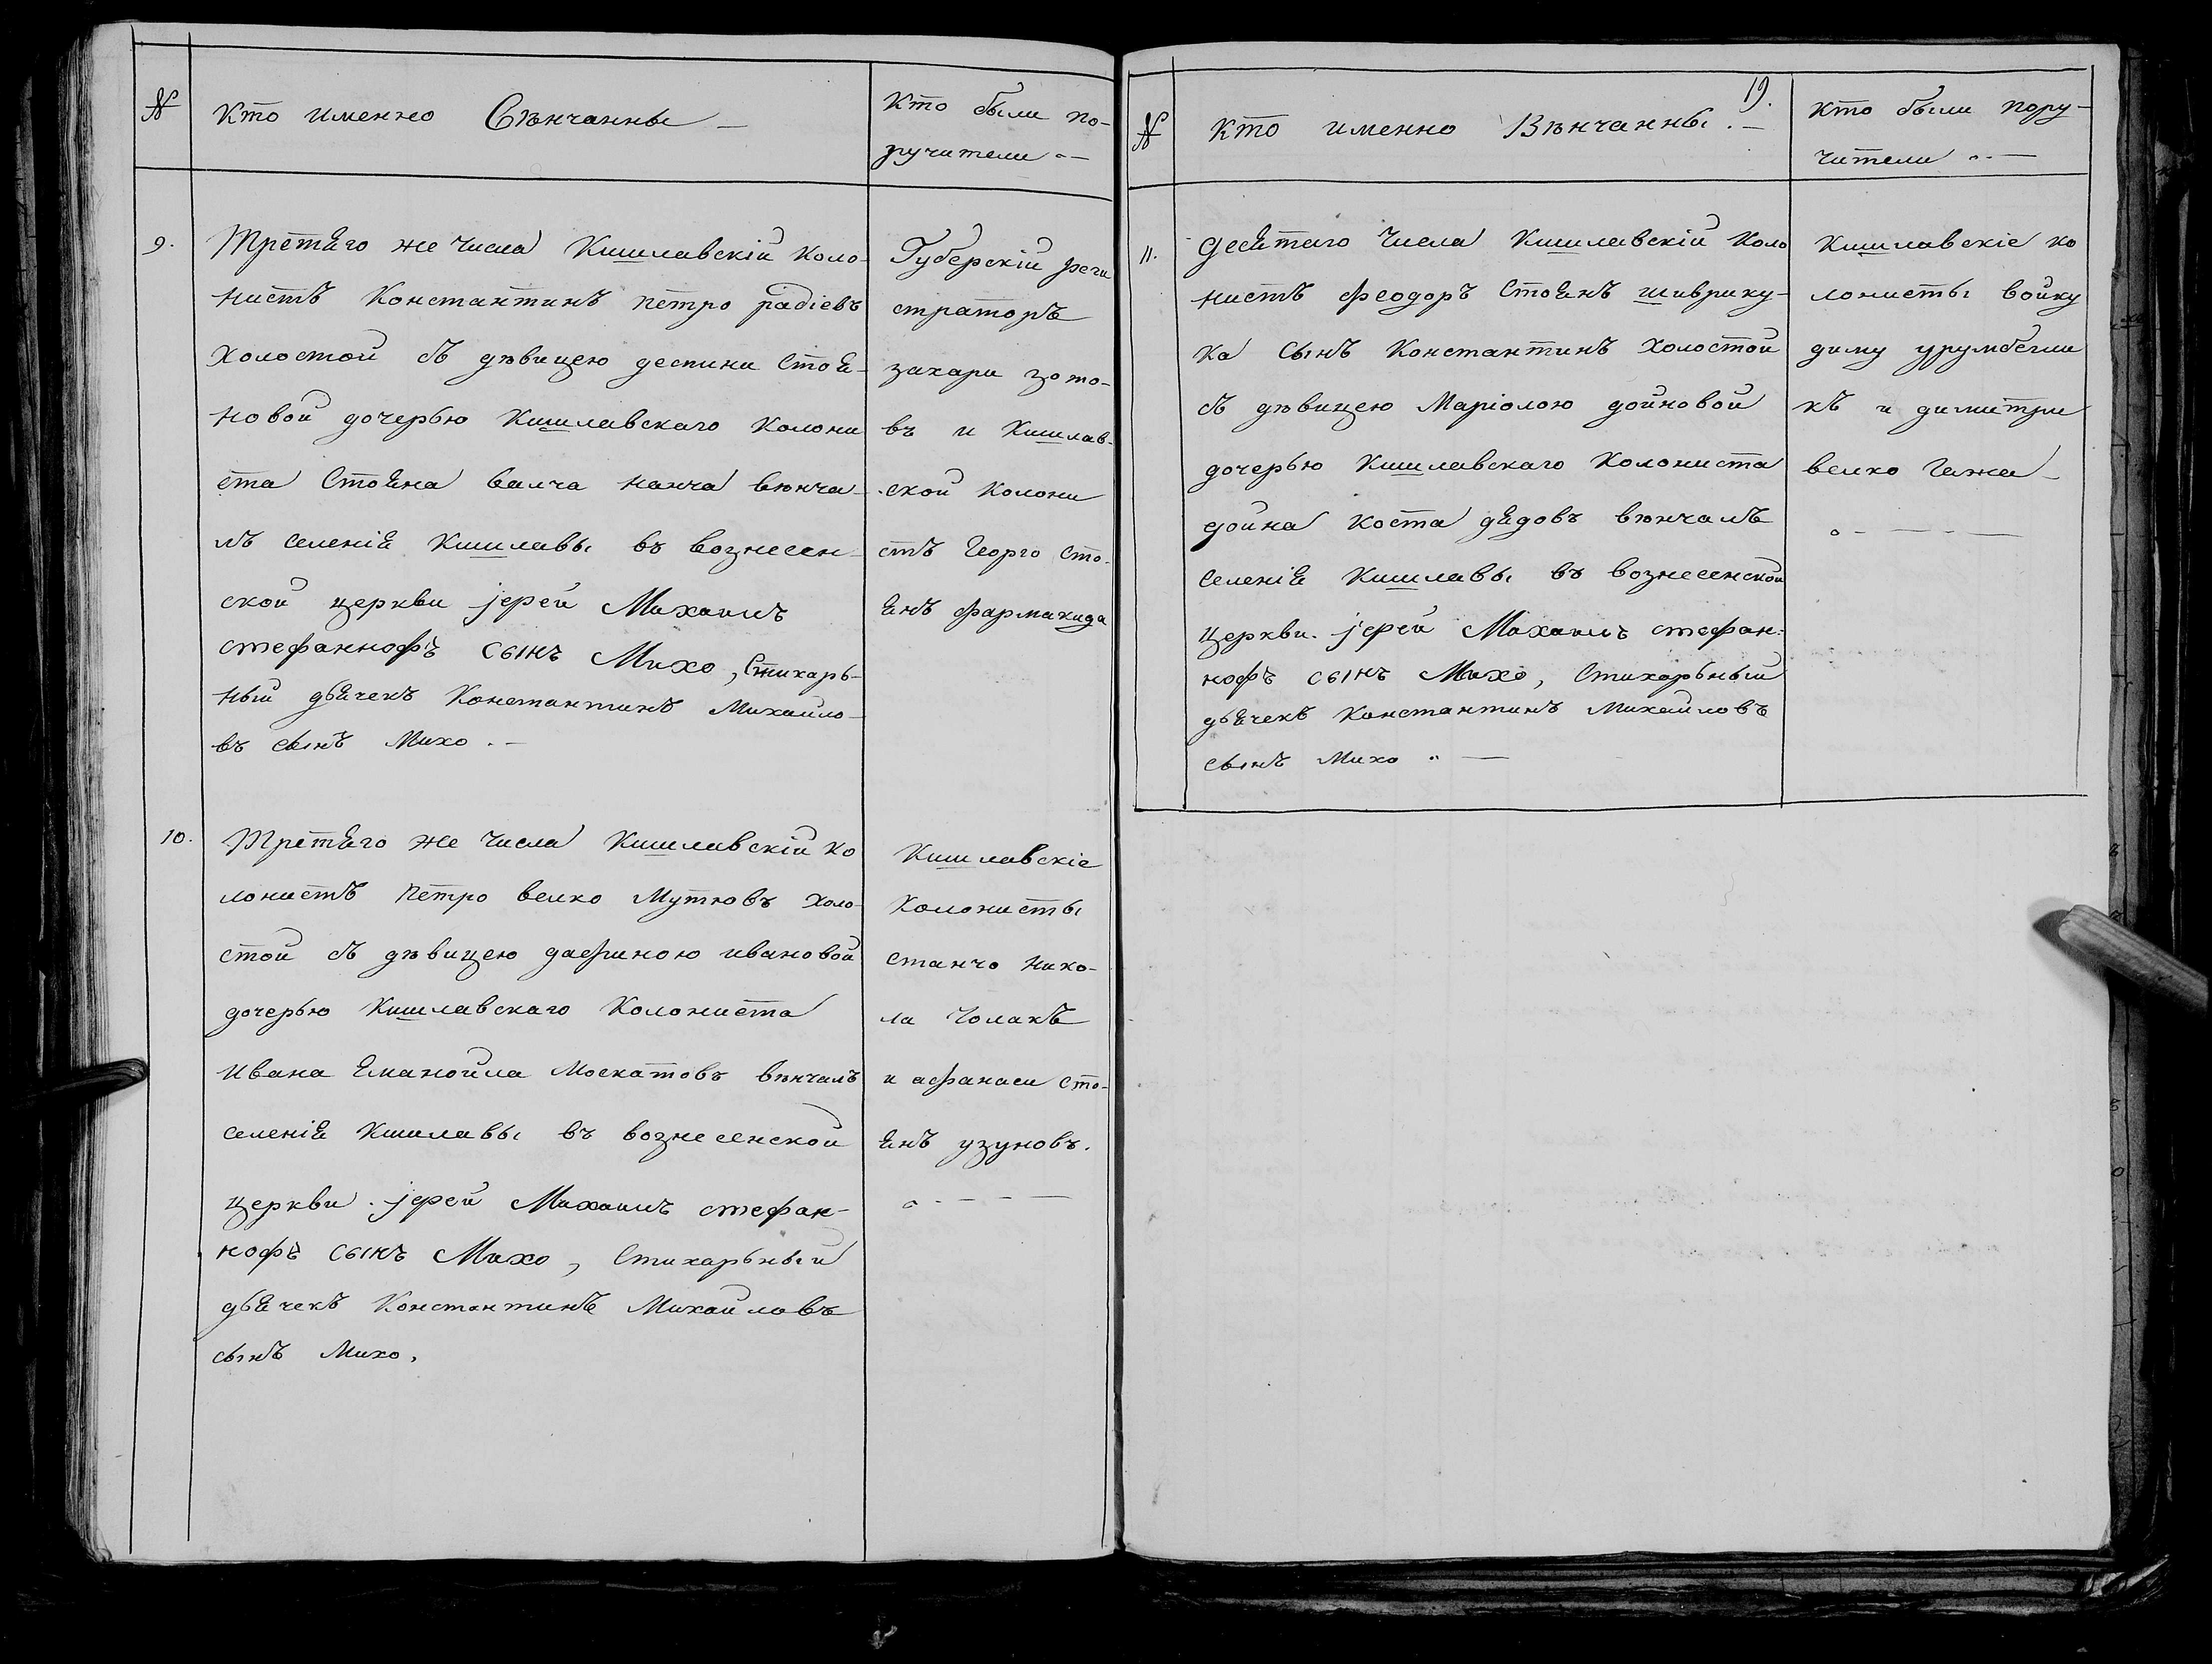 №
Кто именно Вѣнчанны —
Кто были по-
ручители . —
9.
Третяго же числа Кишлавскій коло-
нистъ Константинъ петро радіевъ
холостой съ дѣвицею деспини Стоя-
новой дочерью Кишлавскаго колони
ста Стояна валча нанча вѣнча-
лъ селенія Кишлавы въ вознесен-
ской церкви јерей Михаилъ
стефаннофъ сынъ Михо, Стихарь-
ный дьячекъ Константинъ Михайло-
въ сынъ Михо . —
Губерскій реги
страторъ
захари зото-
въ и Кишлав-
ской колони
стъ Георго сто-
янъ фармакида
10.
Третяго же числа Кишлавскій ко
лонистъ петро велко Мутювъ холо-
стой съ дѣвицею дафиною ивановой
дочерью Кишлавскаго Колониста
ивана Еманойла Москатовъ вѣнчалъ
селенія Кишлавы въ вознесенской
церкви . јерей Михаилъ стефан-
нофъ сынъ Михо, Стихарьный
дьячекъ Константинъ Михайловъ
сынъ Михо.
Кишлавскіе
Колонисты
станчо нико-
ла Чолакъ
и афанаси сто-
янъ узуновъ.
19.
№
Кто именно Вѣнчанны . —
Кто были пору-
чители . . —
11.
Десятаго числа Кишлавскій коло
нистъ феодоръ Стоянъ шиврику-
ка сынъ Константинъ холостой
съ дѣвицею Маріолою дойновой
дочерью Кишлавскаго Колониста
дойна коста дядовъ вѣнчалъ
селенія Кишлавы въ вознесенской
церкви. јерей Михаилъ стефан-
нофъ сынъ Михо, Стихарьный
дьячекъ Константинъ Михайловъ
сынъ Михо . —
Кишлавскіе ко
лонисты войку
диму урумбегли
къ и димитри
велко Гажа —